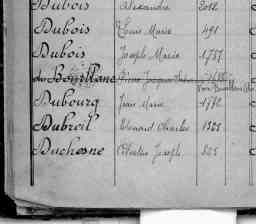 Dubois Alexandre 2012
Dubois Louis Marie 491
Dubois Joseph Marie 1757
du Bouillane Pierre Jacques
Voir Bouillane (du
Dubourg Jean Marie 1772
Dubreil Edouard Charles 1325
Duchesne Charles Joseph 825